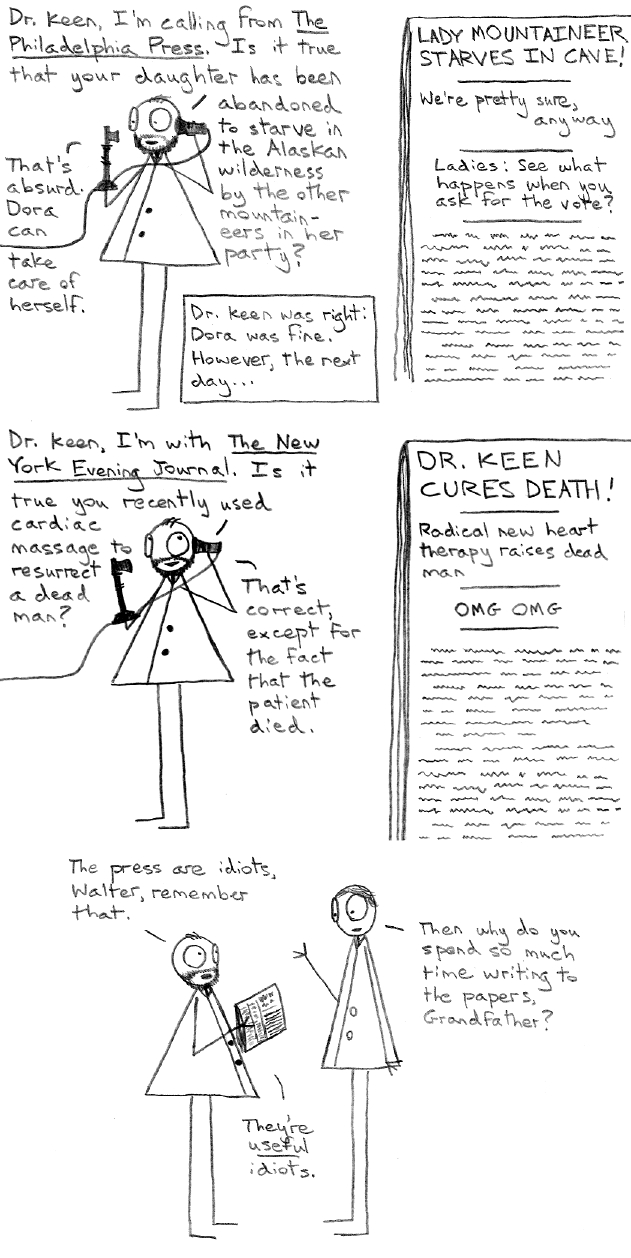 Dr. Keen, I'm calling from The
Philadelphia Press. Is it true
that your daughter has been
abandoned
to starve in
the Alaskan
wilderness
by the other
mountain-
eers in her
party?
That's
absurd.
Dora
can
take
care of
herself.
Dr. Keen was right:
Dora was fine.
However, the next
day...
LADY MOUNTAINEER
STARVES IN CAVE!
We're pretty sure,
anyway
Ladies: See what
happens when you
ask for the vote?
Dr. Keen, I'm with The New
York Evening Journal. Is it
true you recently used
cardiac
massage to
resurrect
a dead
man?
That's
correct,
except for
the fact
that the
patient
died.
DR. KEEN
CURES DEATH!
Radical new heart
therapy raises dead
man
OMG OMG
The press are idiots,
Walter, remember
that.
Then why do you
spend so much
time writing to
the papers,
Grandfather?
They're
useful
idiots.